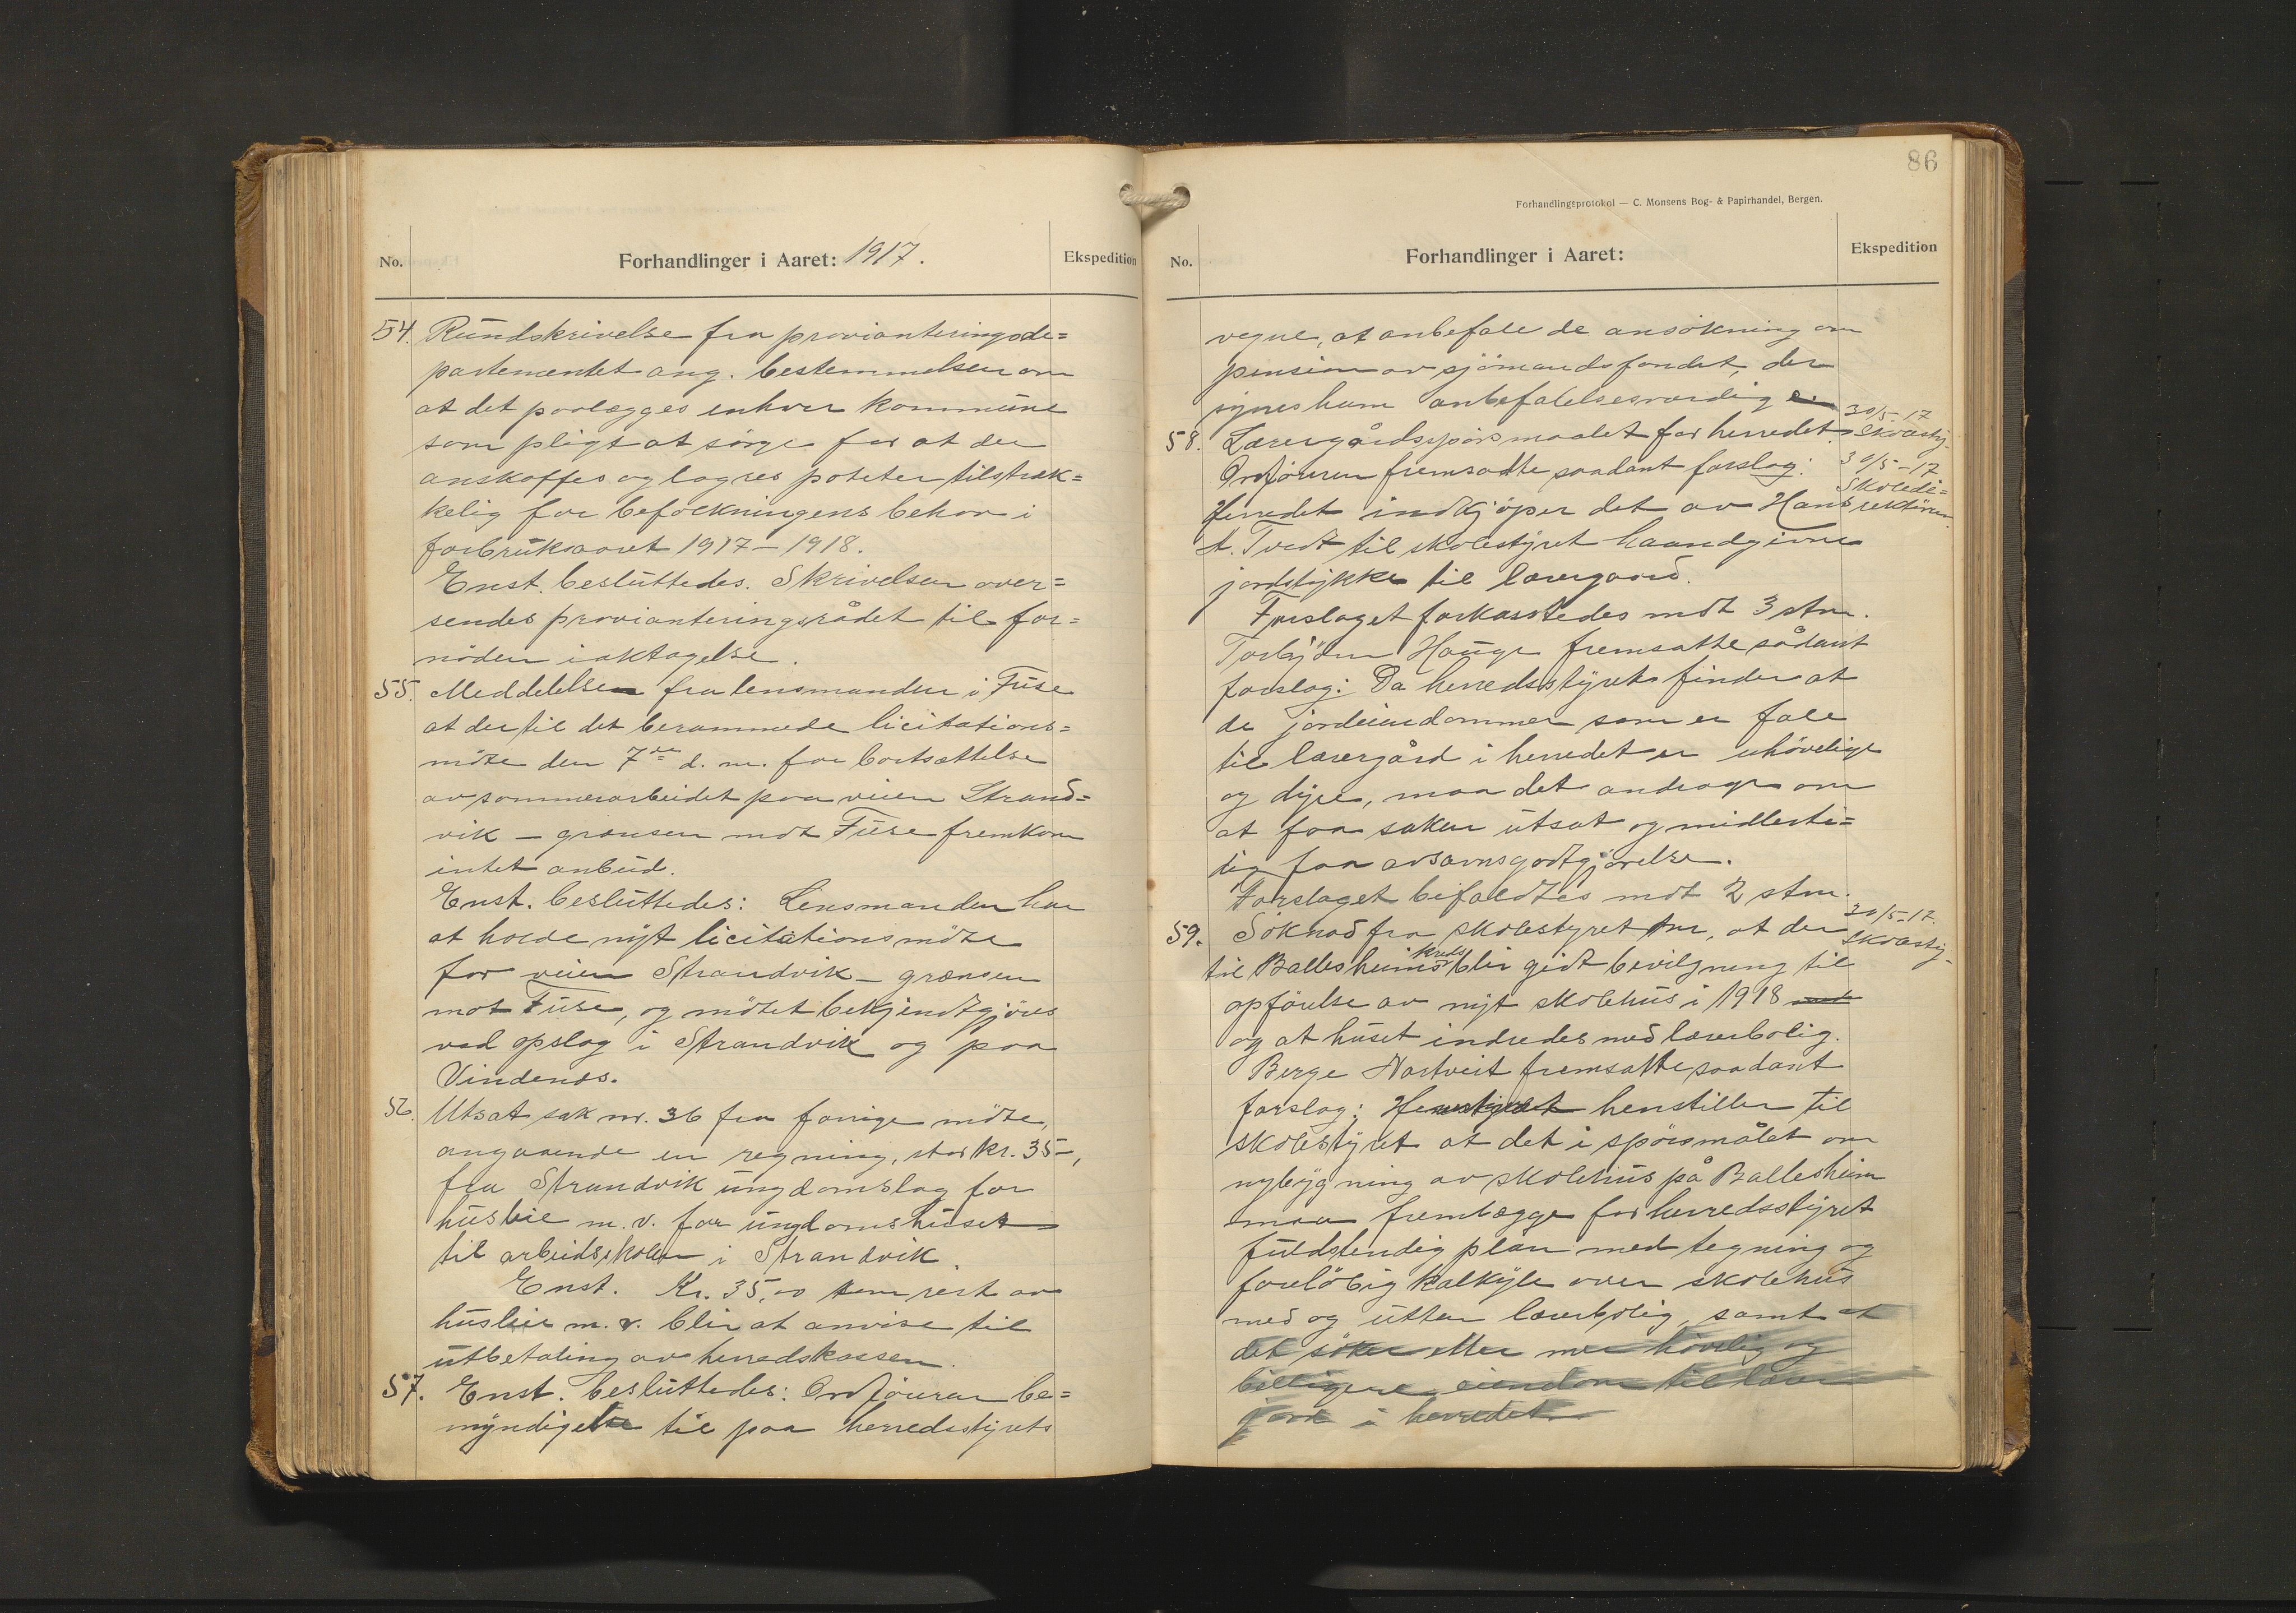 No.
Forhandlinger i Aaret: 1917.
Ekspedition
54. Rundskrivelse fra provianteringsde=
partementet ang. bestemmelsen om
at det paalægges enhver kommune
som pligt at sörge for at der
anskaffes og lagres poteter tilstræk=
kelig for befolkningens behov i
forbruksaaret 1917–1918.
Enst. besluttedes. Skrivelsen over=
sendes provianteringsrådet til for=
nöden iaktagelse.
55. Meddelelse fra lensmanden i Fuse
at der til det berammede licitations=
möte den 7de d. m. for bortsættelse
av sommerarbeidet paa veien Strand=
vik – grænsen mot Fuse fremkom
intet anbud.
Enst. besluttedes: Lensmanden har
at holde nyt licitationsmöte
for veien Strandvik – grænsen
mot Fuse, og mötet bekjendtgjöres
ved opslag i Strandvik og paa
Vindenes.
56. Utsat sak nr. 36 fra forrige möte,
angaaende en regning, stor kr. 35-,
fra Strandvik ungdomslag for
husleie m. v. for ungdomshuset
til arbeidskolen i Strandvik.
Enst. Kr. 35,00 som rest av
husleie m. v. blir at anvise til
utbetaling av herredskassen.
57. Enst. besluttedes: Ordföreren be=
myndiges til paa herredsstyrets
86
Forhandlingsprotokol — C. Monsens Bog- & Papirhandel, Bergen.
No.
Forhandlinger i Aaret:
Ekspedition
vegne, at anbefale de ansökning om
pension av sjömandsfondet, der
synes ham anbefalelsesværdig er
30/5-17
Skolesty.
58. Lærergårdsspörsmaalet for herredet.
30/5-17
Skoledi=
rektören.
Ordföreren fremsatte saadant forslag:
Herredet indkjöper det av Hans
A. Tvedt til skolestyret haandgivne
jordstykke til lærergaard.
Forslaget forkastedes mot 3 stm.
Torbjörn Hauge fremsatte sådant
forslag: Da herredsstyret finder at
de jordeiendommer som er fale
til lærergård i herredet er uhövelige
og dyre, maa det andrage om
at faa saken utsat og midlerti=
dig faa avsavnsgodtgjörelse.
Forslaget bifaldtes mot 2 stm.
30/5-17.
Skolesty.
59. Söknad fra skolestyret om, at der
til Ballesheims kreds blir gidt bevilgning til
opförelse av nyt skolehus i 1918 med
og at huset indredes med lærerbolig.
Berge Nortveit fremsatte saadant
forslag: Herredstyret henstiller til
skolestyret at det i spörsmålet om
nybygning av skolehus på Ballesheim
maa fremlægge for herredsstyret
fuldstendig plan med tegning og
forelöbig kalkyle over skolehus
med og utten lærerbolig, samt at
det söker etter mer hövelig og
billigere eiendom til lærer
jord i herredet